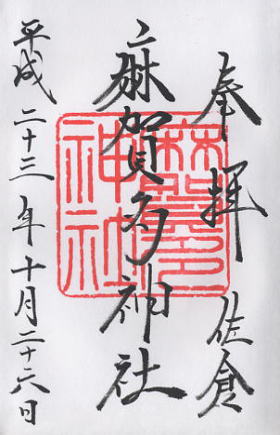 奉拝 佐倉
麻賀多神社
平成二十三年十月二十六日
麻賀多
神社